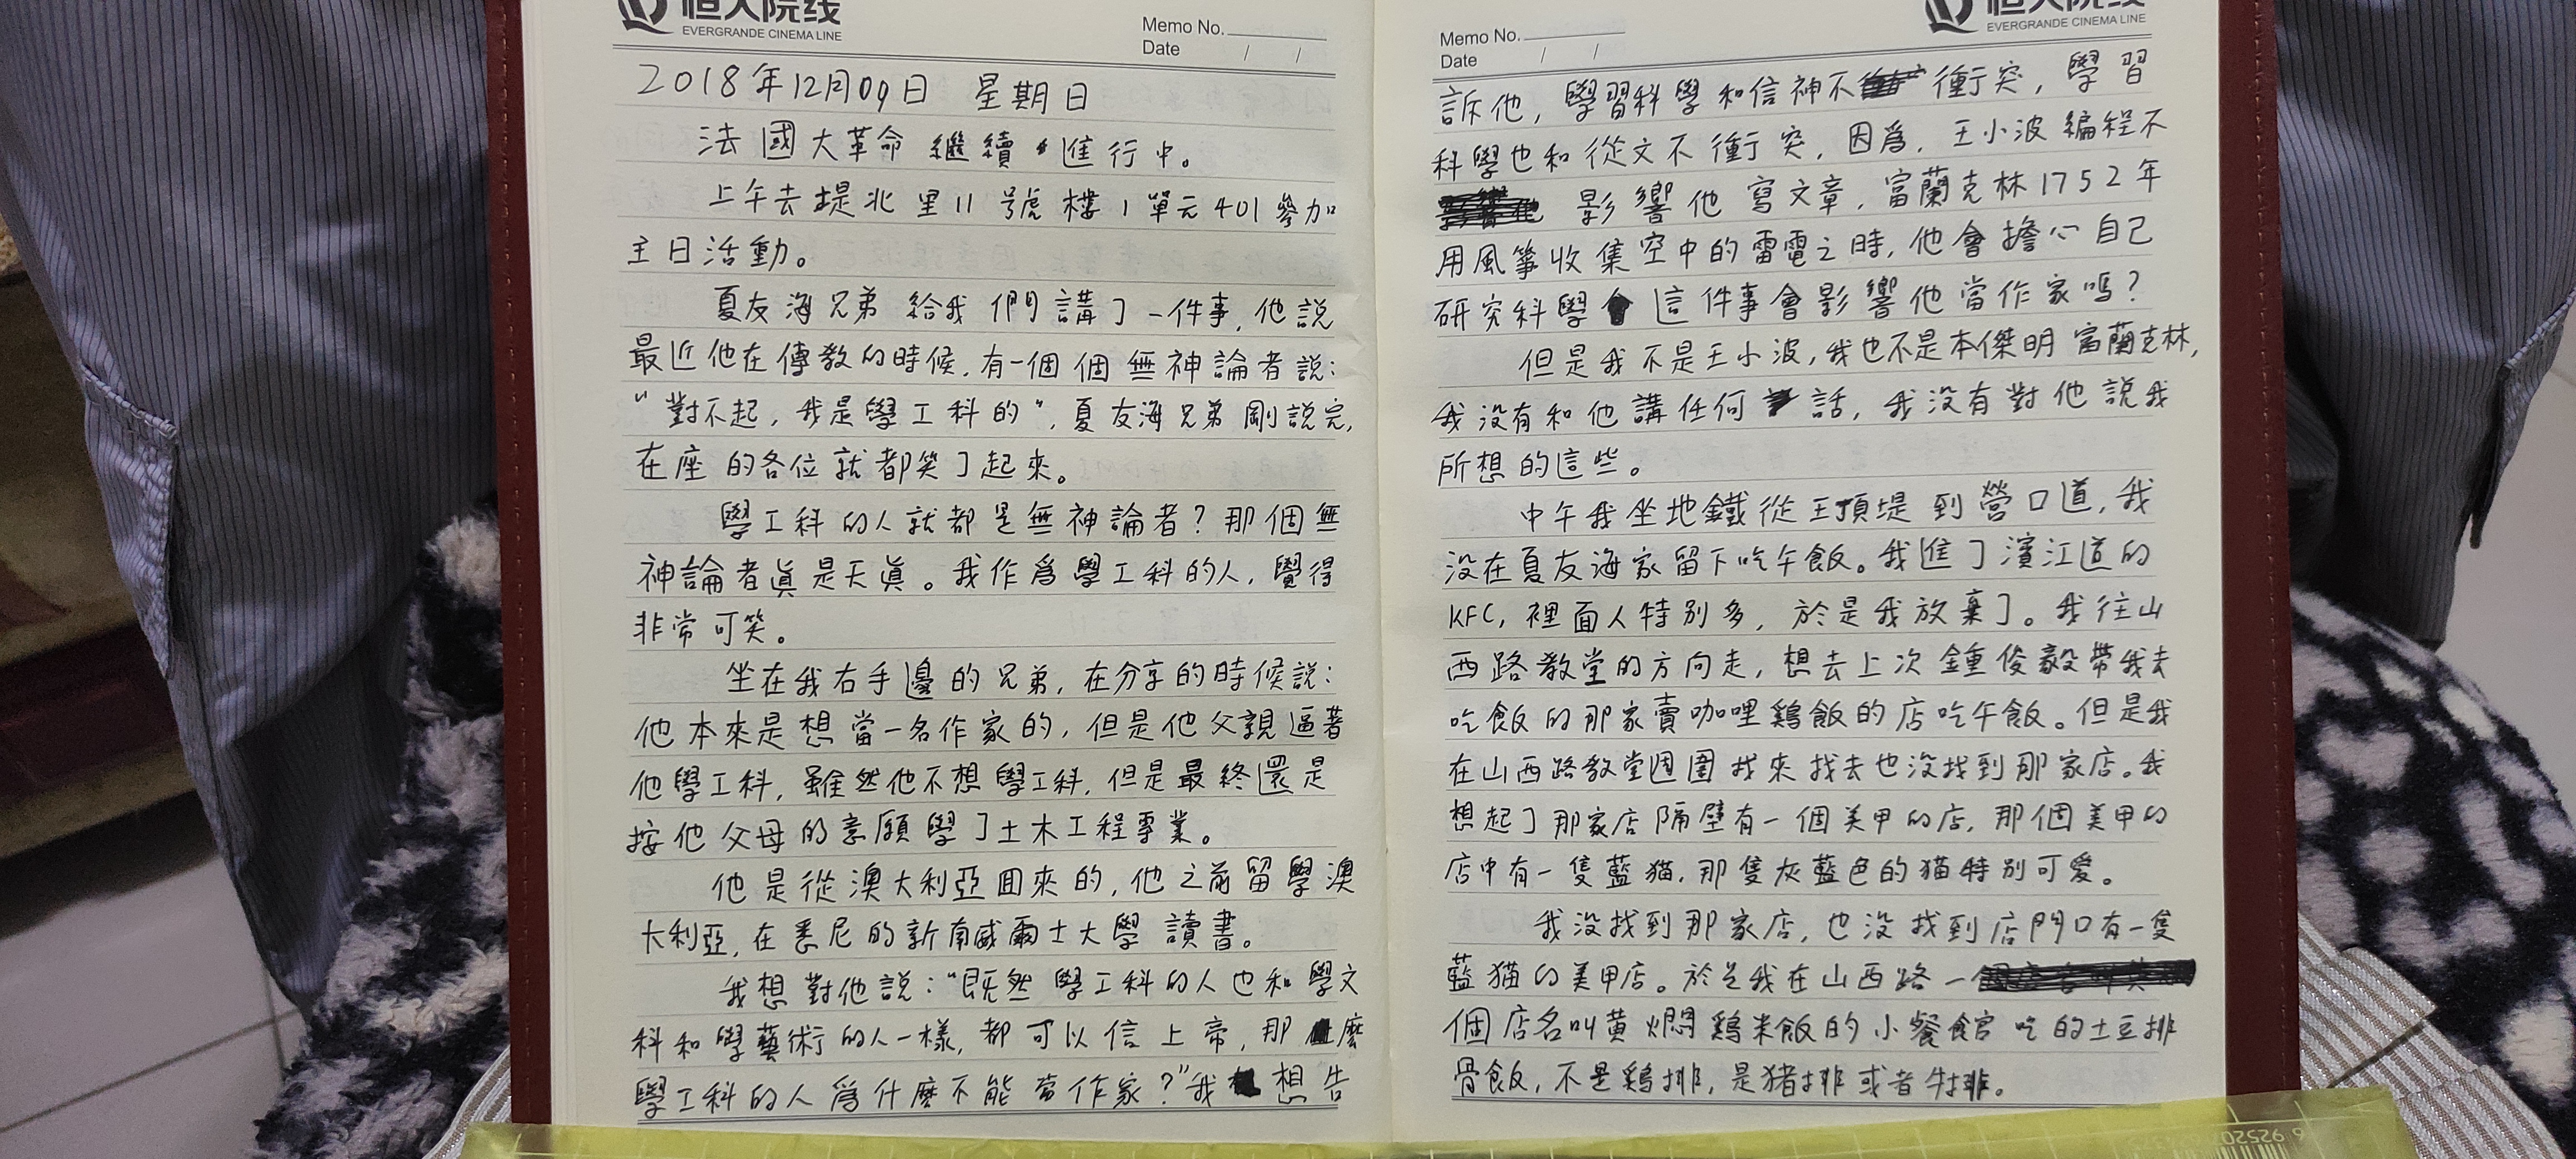 恒大院线
EVERGRANDE CINEMA LINE
Memo No.
Date / /
2018年12月09日 星期日
法國大革命繼續進行中。
上午去堤北里11號樓1單元401參加
主日活動。
夏友海兄弟給我們講了一件事,他説
最近他在傳教的時候,有一個個無神論者説:
“對不起,我是學工科的”,夏友海兄弟剛説完,
在座的各位就都笑了起來。
學工科的人就都是無神論者?那個無
神論者眞是天眞。我作爲學工科的人,覺得
非常可笑。
坐在我右手邊的兄弟,在分享的時候説:
他本來是想當一名作家的,但是他父親逼著
他學工科,雖然他不想學工科,但是最終還是
按他父母的意願學了土木工程專業。
他是從澳大利亞回來的,他之前留學澳
大利亞,在悉尼的新南威爾士大學讀書。
我想對他説:“既然學工科的人也和學文
科和學藝術的人一樣,都可以信上帝,那麼
學工科的人爲什麼不能當作家?”我想告
恒大院线
EVERGRANDE CINEMA LINE
Memo No.
Date / /
訴他,學習科學和信神不衝突,學習
科學也和從文不衝突,因爲,王小波編程不
影響他寫文章,富蘭克林1752年
用風箏收集空中的雷電之時,他會擔心自己
研究科學這件事會影響他當作家嗎?
但是我不是王小波,我也不是本傑明富蘭克林,
我没有和他講任何話,我没有對他説我
所想的這些。
中午我坐地鐵從王頂堤到營口道,我
没在夏友海家留下吃午飯。我進了濱江道的
KFC,裡面人特别多,於是我放棄了。我往山
西路教堂的方向走,想去上次鍾俊毅帶我去
吃飯的那家賣咖哩鷄飯的店吃午飯。但是我
在山西路教堂週圍找來找去也没找到那家店。我
想起了那家店隔壁有一個美甲的店,那個美甲的
店中有一隻藍猫,那隻灰藍色的猫特别可愛。
我没找到那家店,也没找到店門口有一隻
藍猫的美甲店。於是我在山西路一
個店名叫黄燜鷄米飯的小餐館吃的土豆排
骨飯,不是鷄排,是猪排或者牛排。